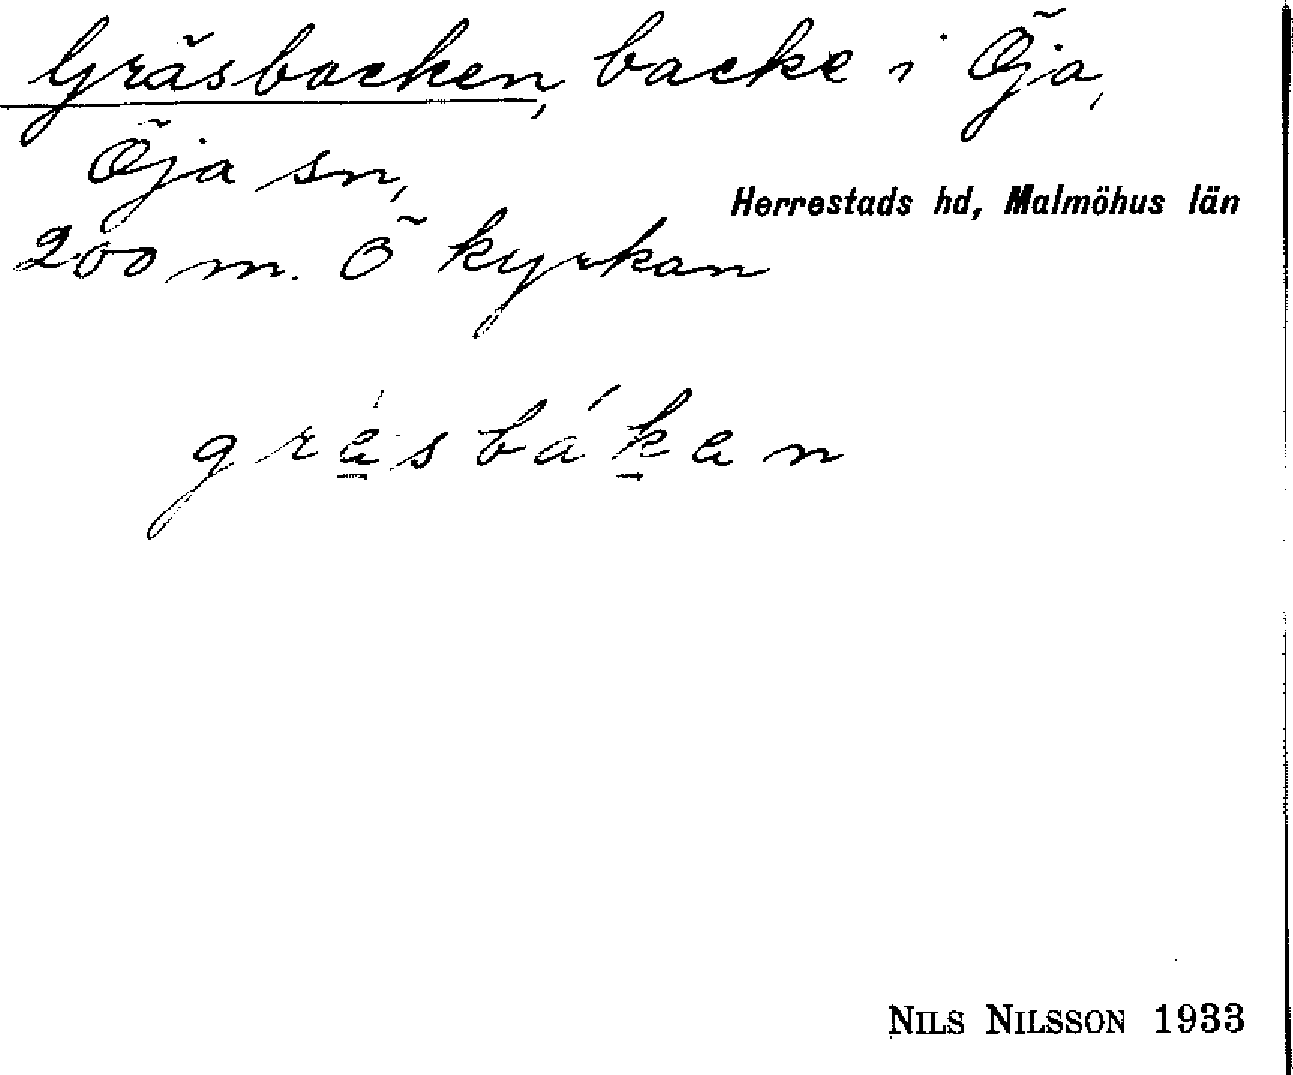 Gräsbacken, backe i Öja,
Öja sn,
Herrestads hd, Malmöhus län
200 m. Ö kyrkan
gra̱̍sbáḵan
NILS NILSSON 1933